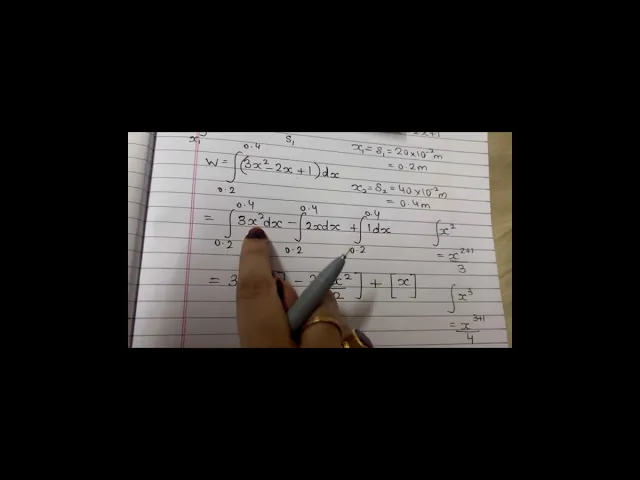 x₁ S₁ 2x+1
x₁ = S₁ = 20×10⁻² m
= 0.2m
W = ∫0.2^0.4 (3x² − 2x + 1) dx
x₂ = S₂ = 40×10⁻² m
= 0.4m
= ∫0.2^0.4 3x² dx − ∫0.2^0.4 2x dx + ∫0.2^0.4 1 dx
∫x²
= x²⁺¹/3
= 3 ] − 2 x²/2 ] + [x]
∫x³
= x³⁺¹/4